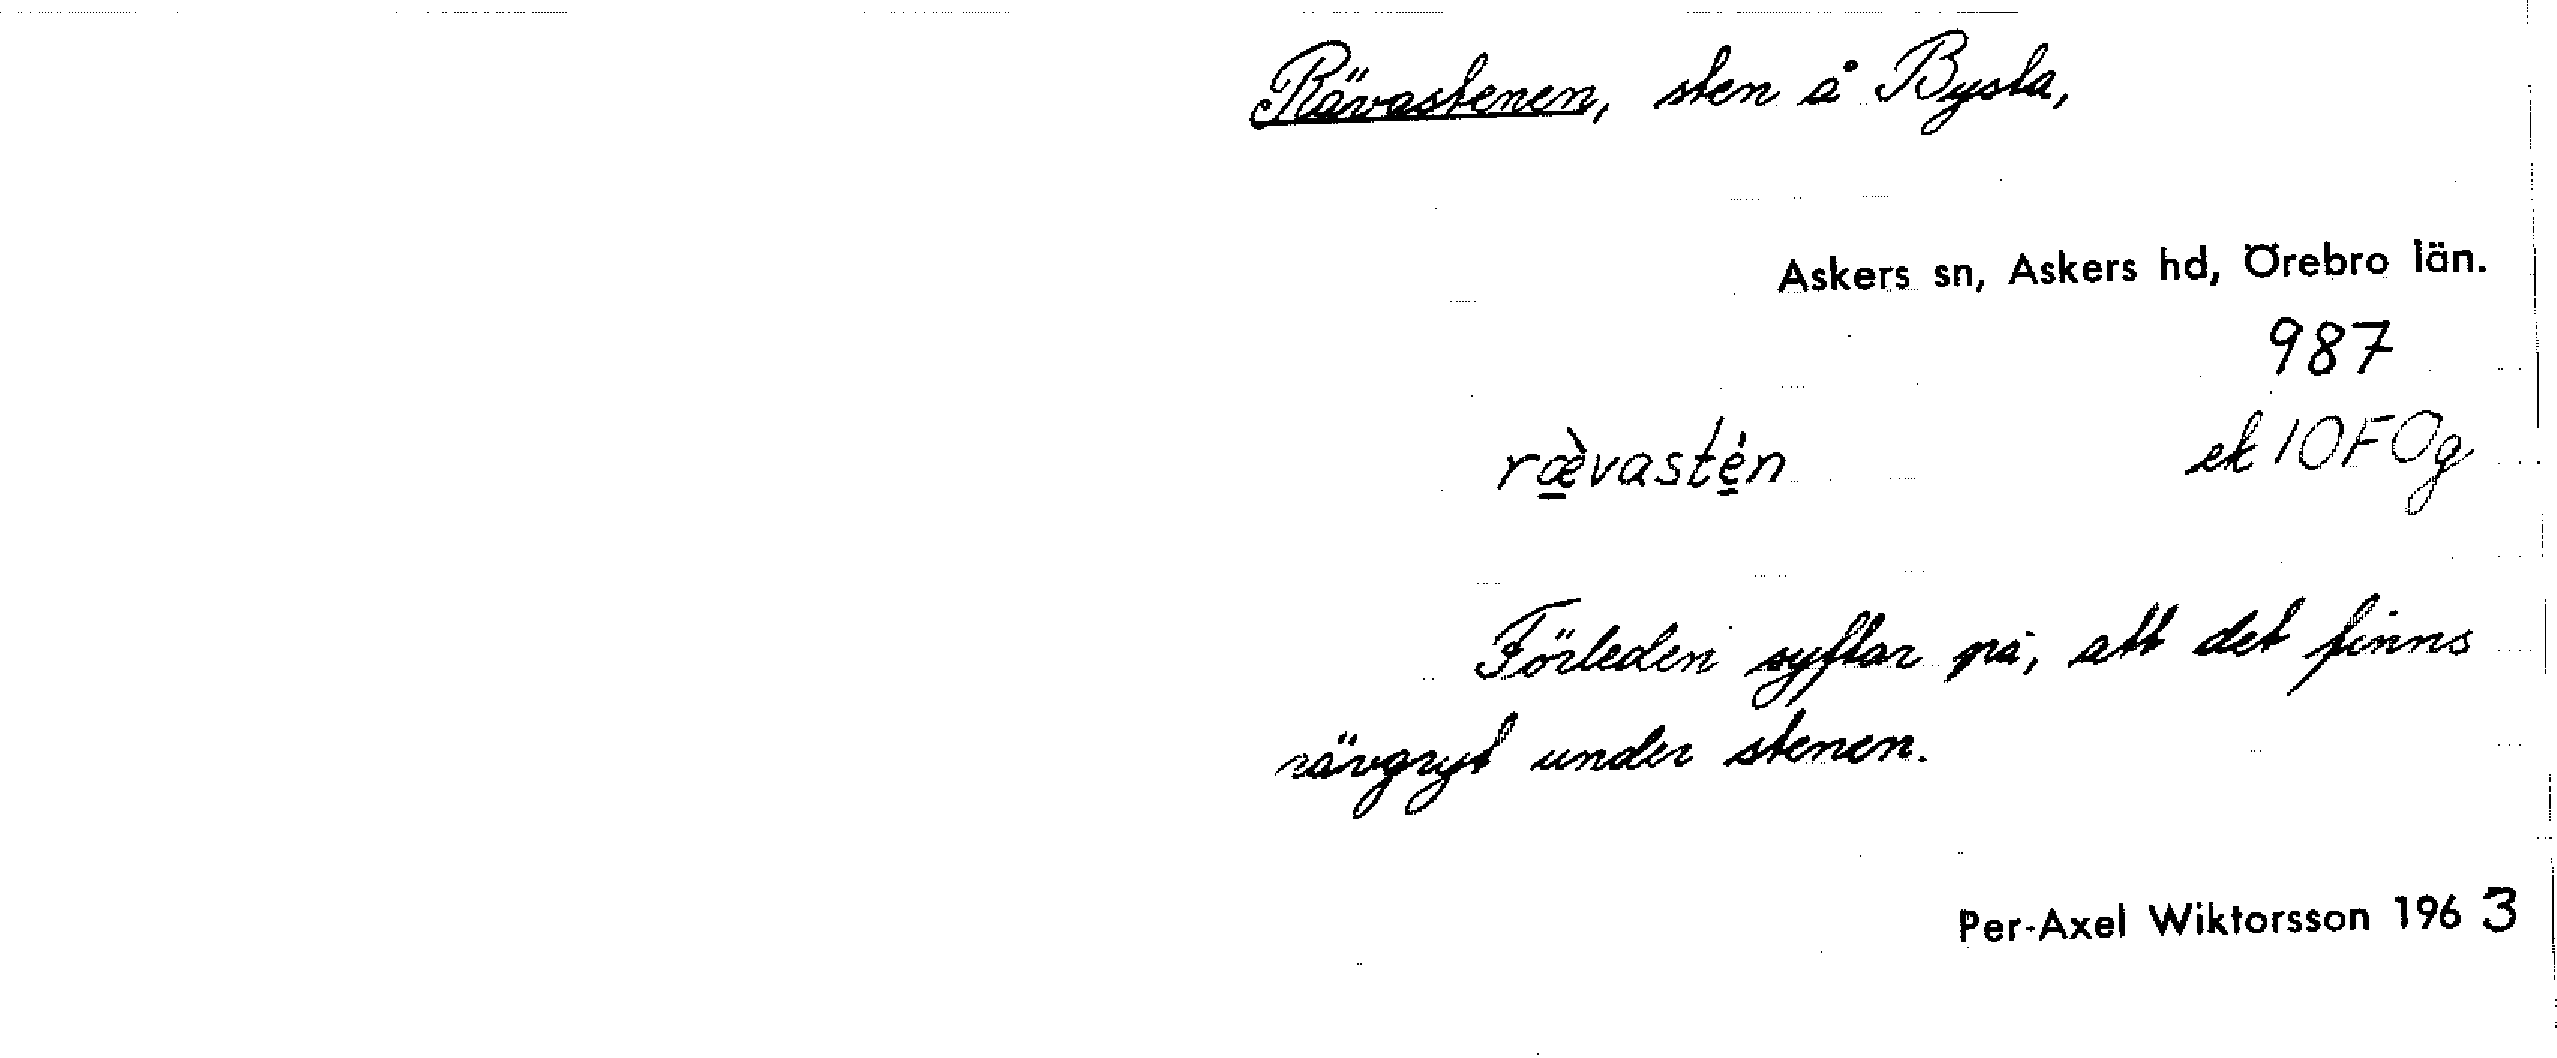 Rävastenen, sten å Bysta,
Askers sn, Askers hd, Örebro län.
987
ræ̱̀vasté̱n ek 10F0g
Förleden syftar på, att det finns
rävgryt under stenen.
Per-Axel Wiktorsson 1963